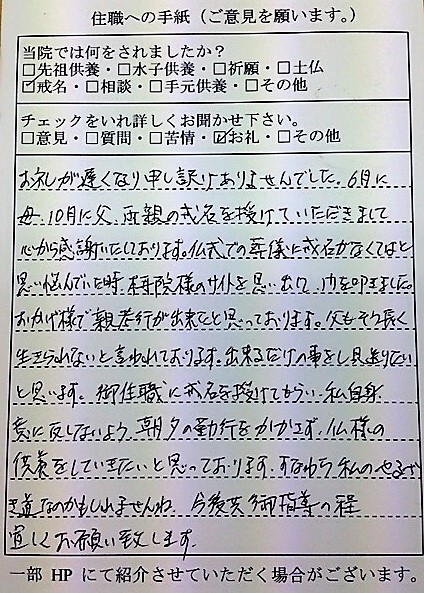 住職への手紙（ご意見を願います。）
当院では何をされましたか？
□先祖供養・□水子供養・□祈願・□土仏
☑戒名・□相談・□手元供養・□その他
チェックをいれ詳しくお聞かせ下さい。
□意見・□質問・□苦情・☑お礼・□その他
お礼が遅くなり申し訳けありませんでした。6月に
母、10月に父、両親の戒名を授けていただきまして
心から感謝いたしております。仏式での葬儀に戒名がなくてはと
思い悩んでいた時、寺院様のサイトを思い出して、門を叩きました。
おかげ様で親孝行が出来たと思っております。父もそう長く
生きられないと言われております。出来るだけの事をし見送りたい
と思います。御住職に戒名を授けてもらい、私自身
意に反しないよう、朝夕の勤行をかかさず、仏様の
供養をしていきたいと思っております。すなわち私のやるべ
き道なのかもしれませんね。今後共御指導の程
宜しくお願い致します。
一部 HP にて紹介させていただく場合がございます。